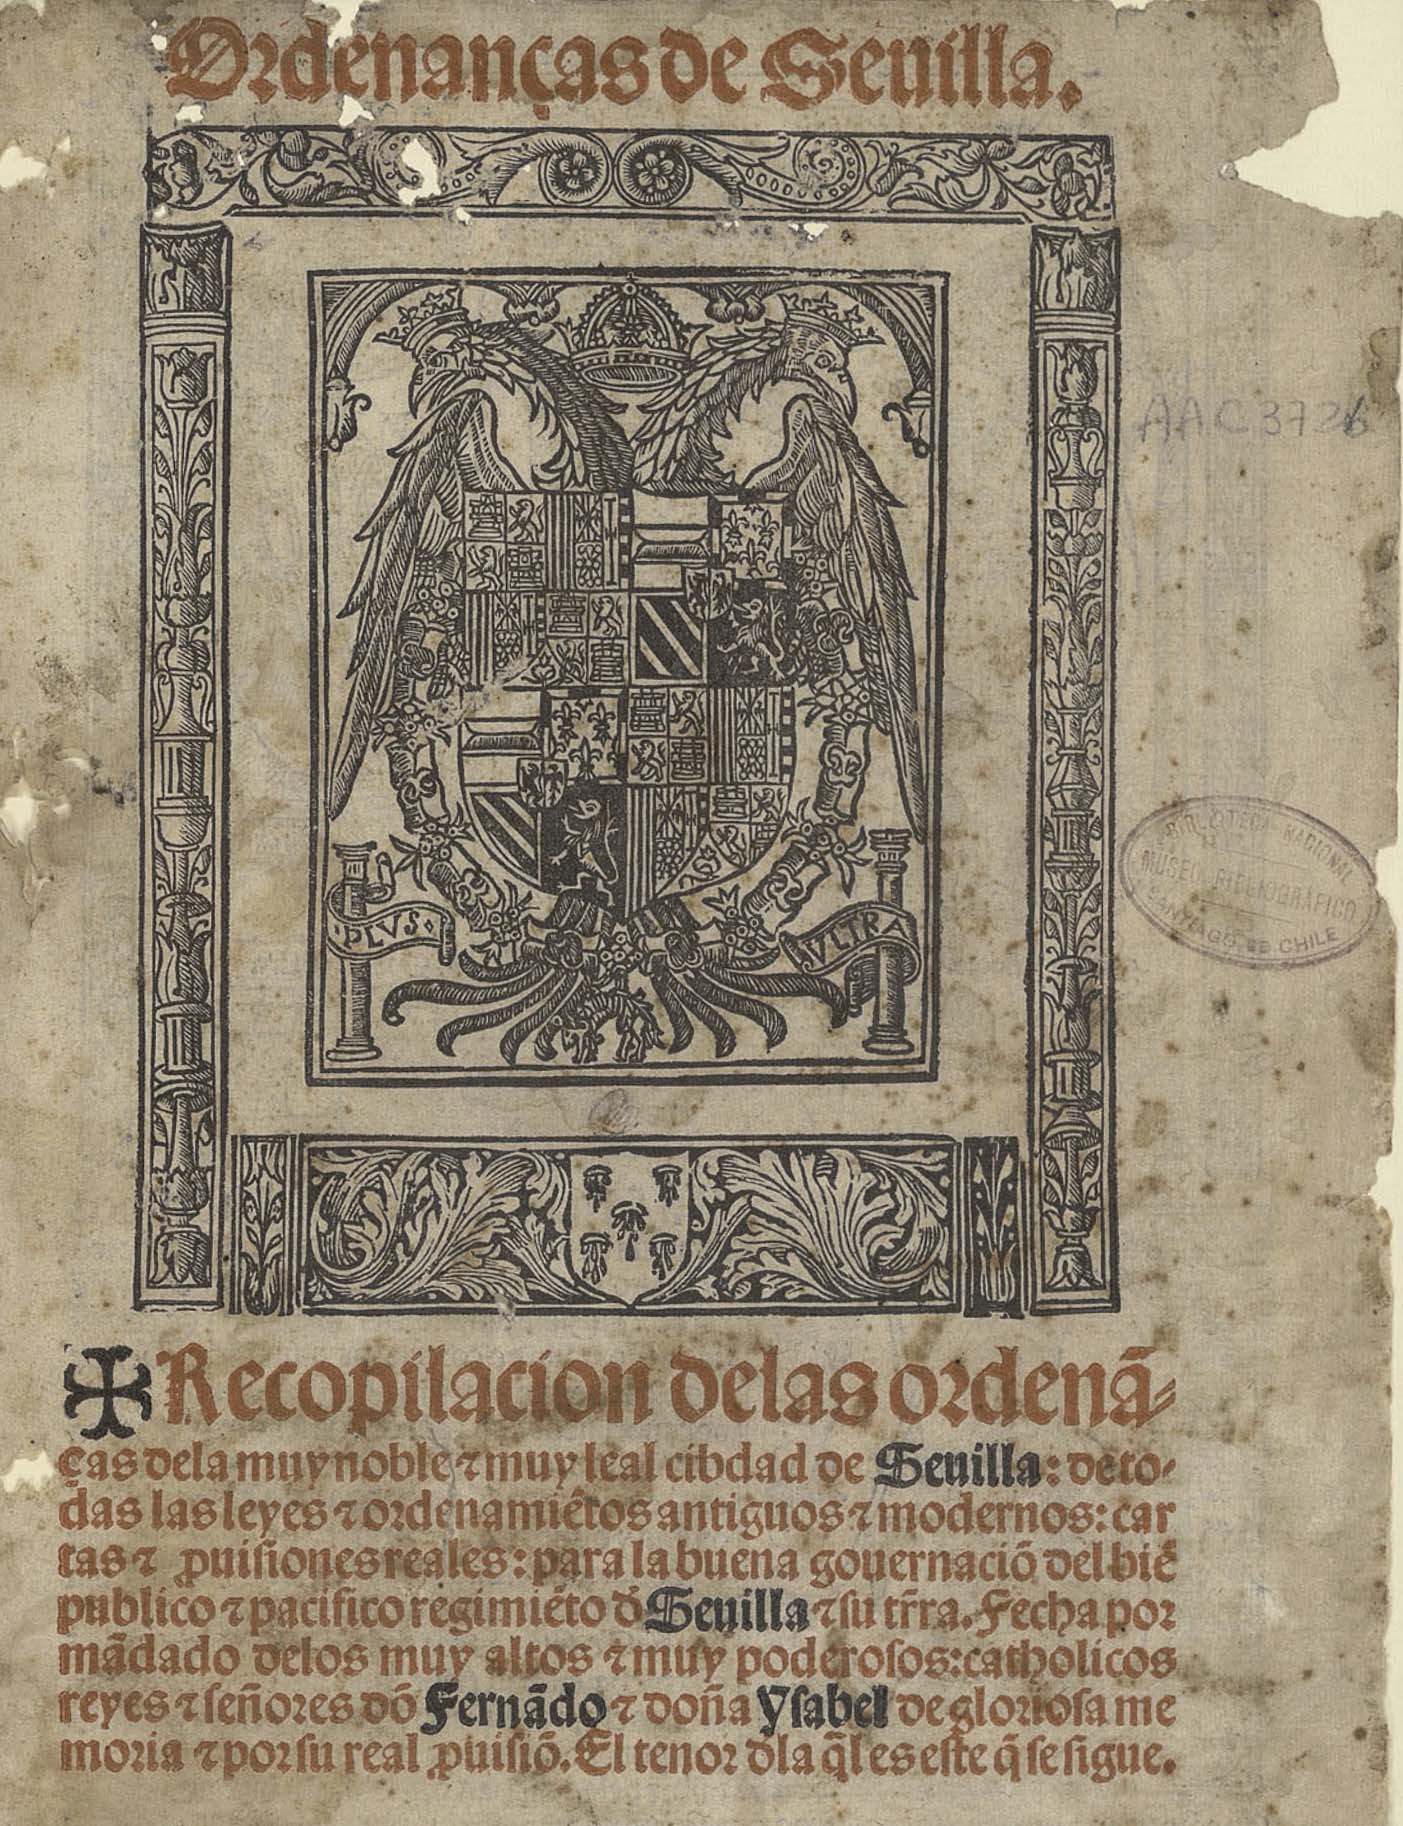 Ordenanças de Seuilla.
AAC 3726
PLVS
VLTRA
BIBLIOTECA NACIONAL
MUSEO BIBLIOGRÁFICO
SANTIAGO DE CHILE
✠ Recopilacion delas ordenã-
ças dela muy noble ⁊ muy leal cibdad de Seuilla: de to-
das las leyes ⁊ ordenamiẽtos antiguos ⁊ modernos: car
tas ⁊ ꝓuisiones reales: para la buena gouernaciõ del biẽ
publico ⁊ pacifico regimiẽto d̃ Seuilla ⁊ su tr̃ra. Fecha por
mãdado delos muy altos ⁊ muy poderosos: catholicos
reyes ⁊ señores dõ Fernãdo ⁊ doña Ysabel de gloriosa me
moria ⁊ por su real ꝓuisiõ. El tenor dla q̃l es este q̃ se sigue.